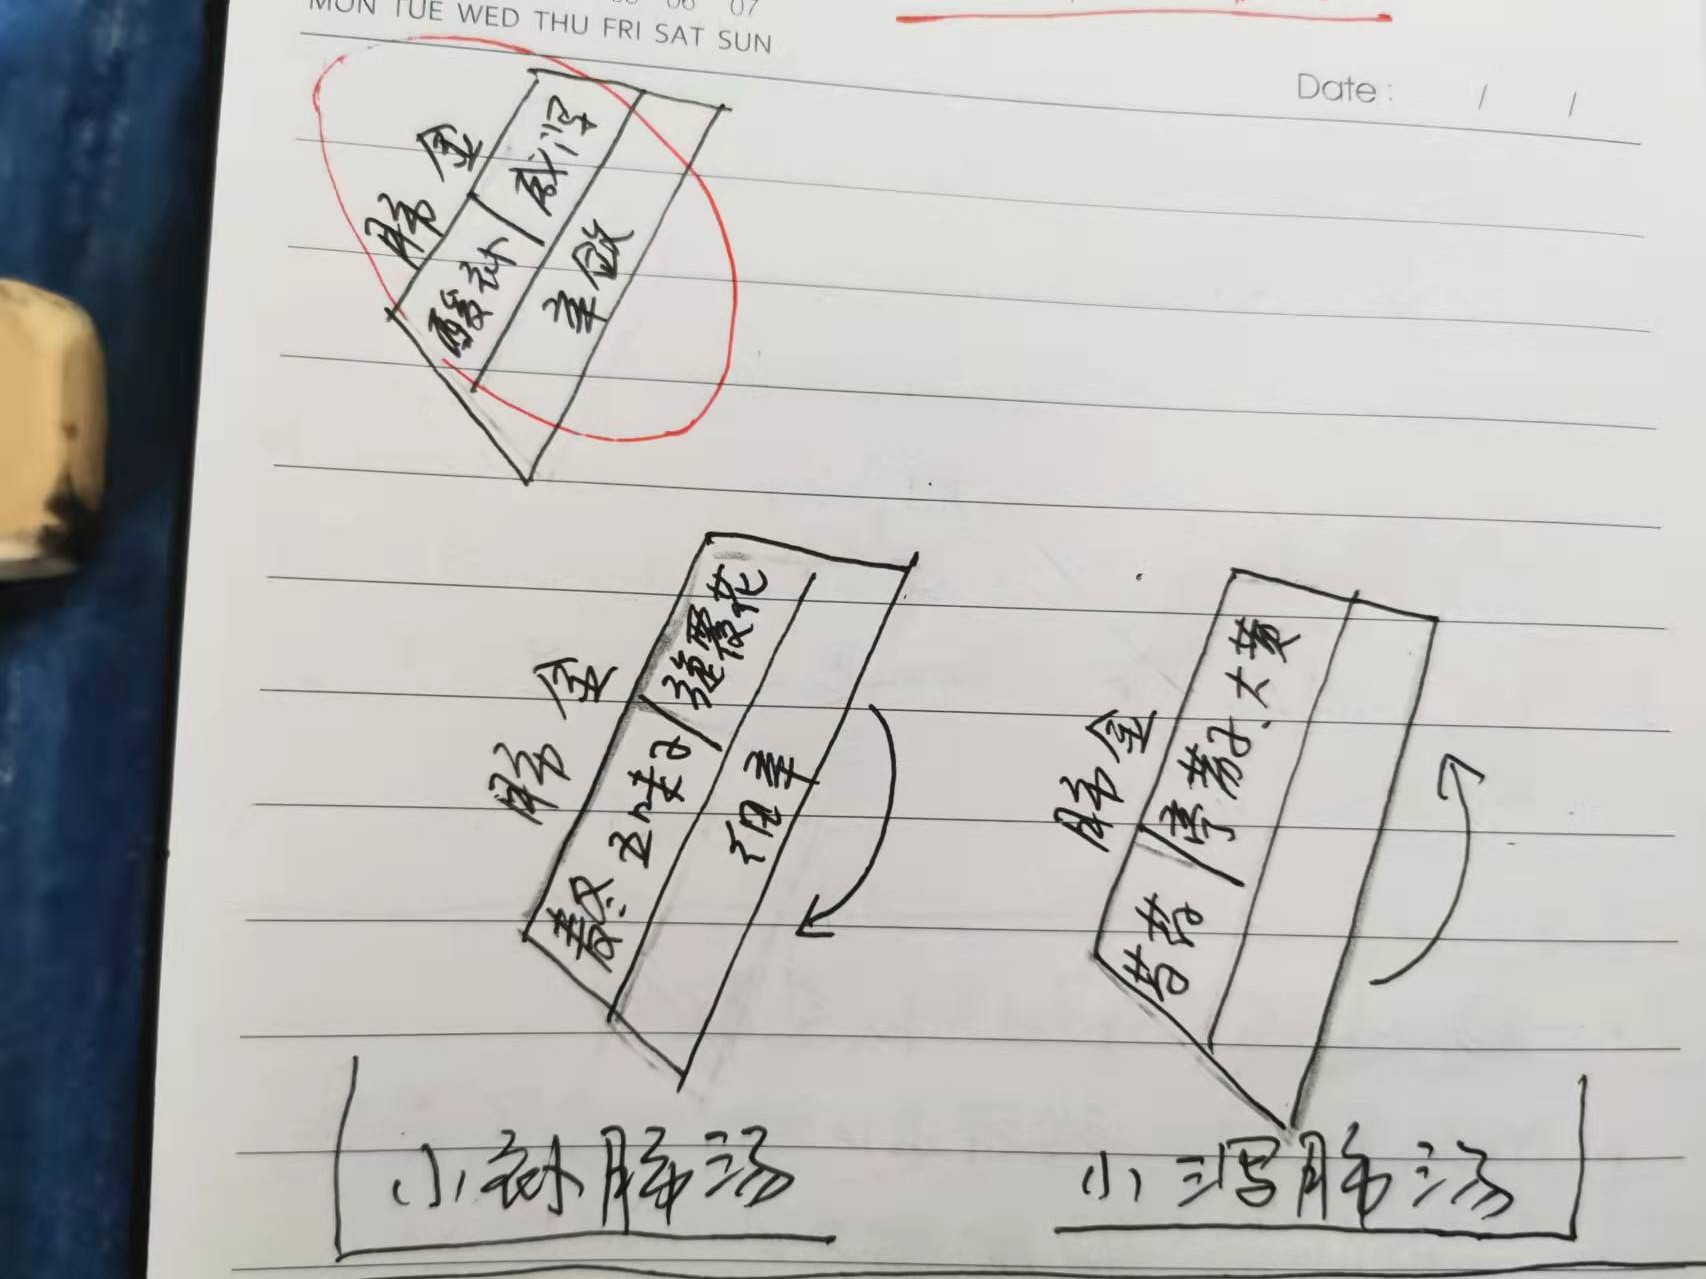 MON TUE WED THU FRI SAT SUN
Date: / /
肺金
酸补 / 咸泻
辛散
肺金
麦冬 五味子 / 旋覆花
细辛
肺金
芍药 / 葶苈子、大黄
小补肺汤
小泻肺汤